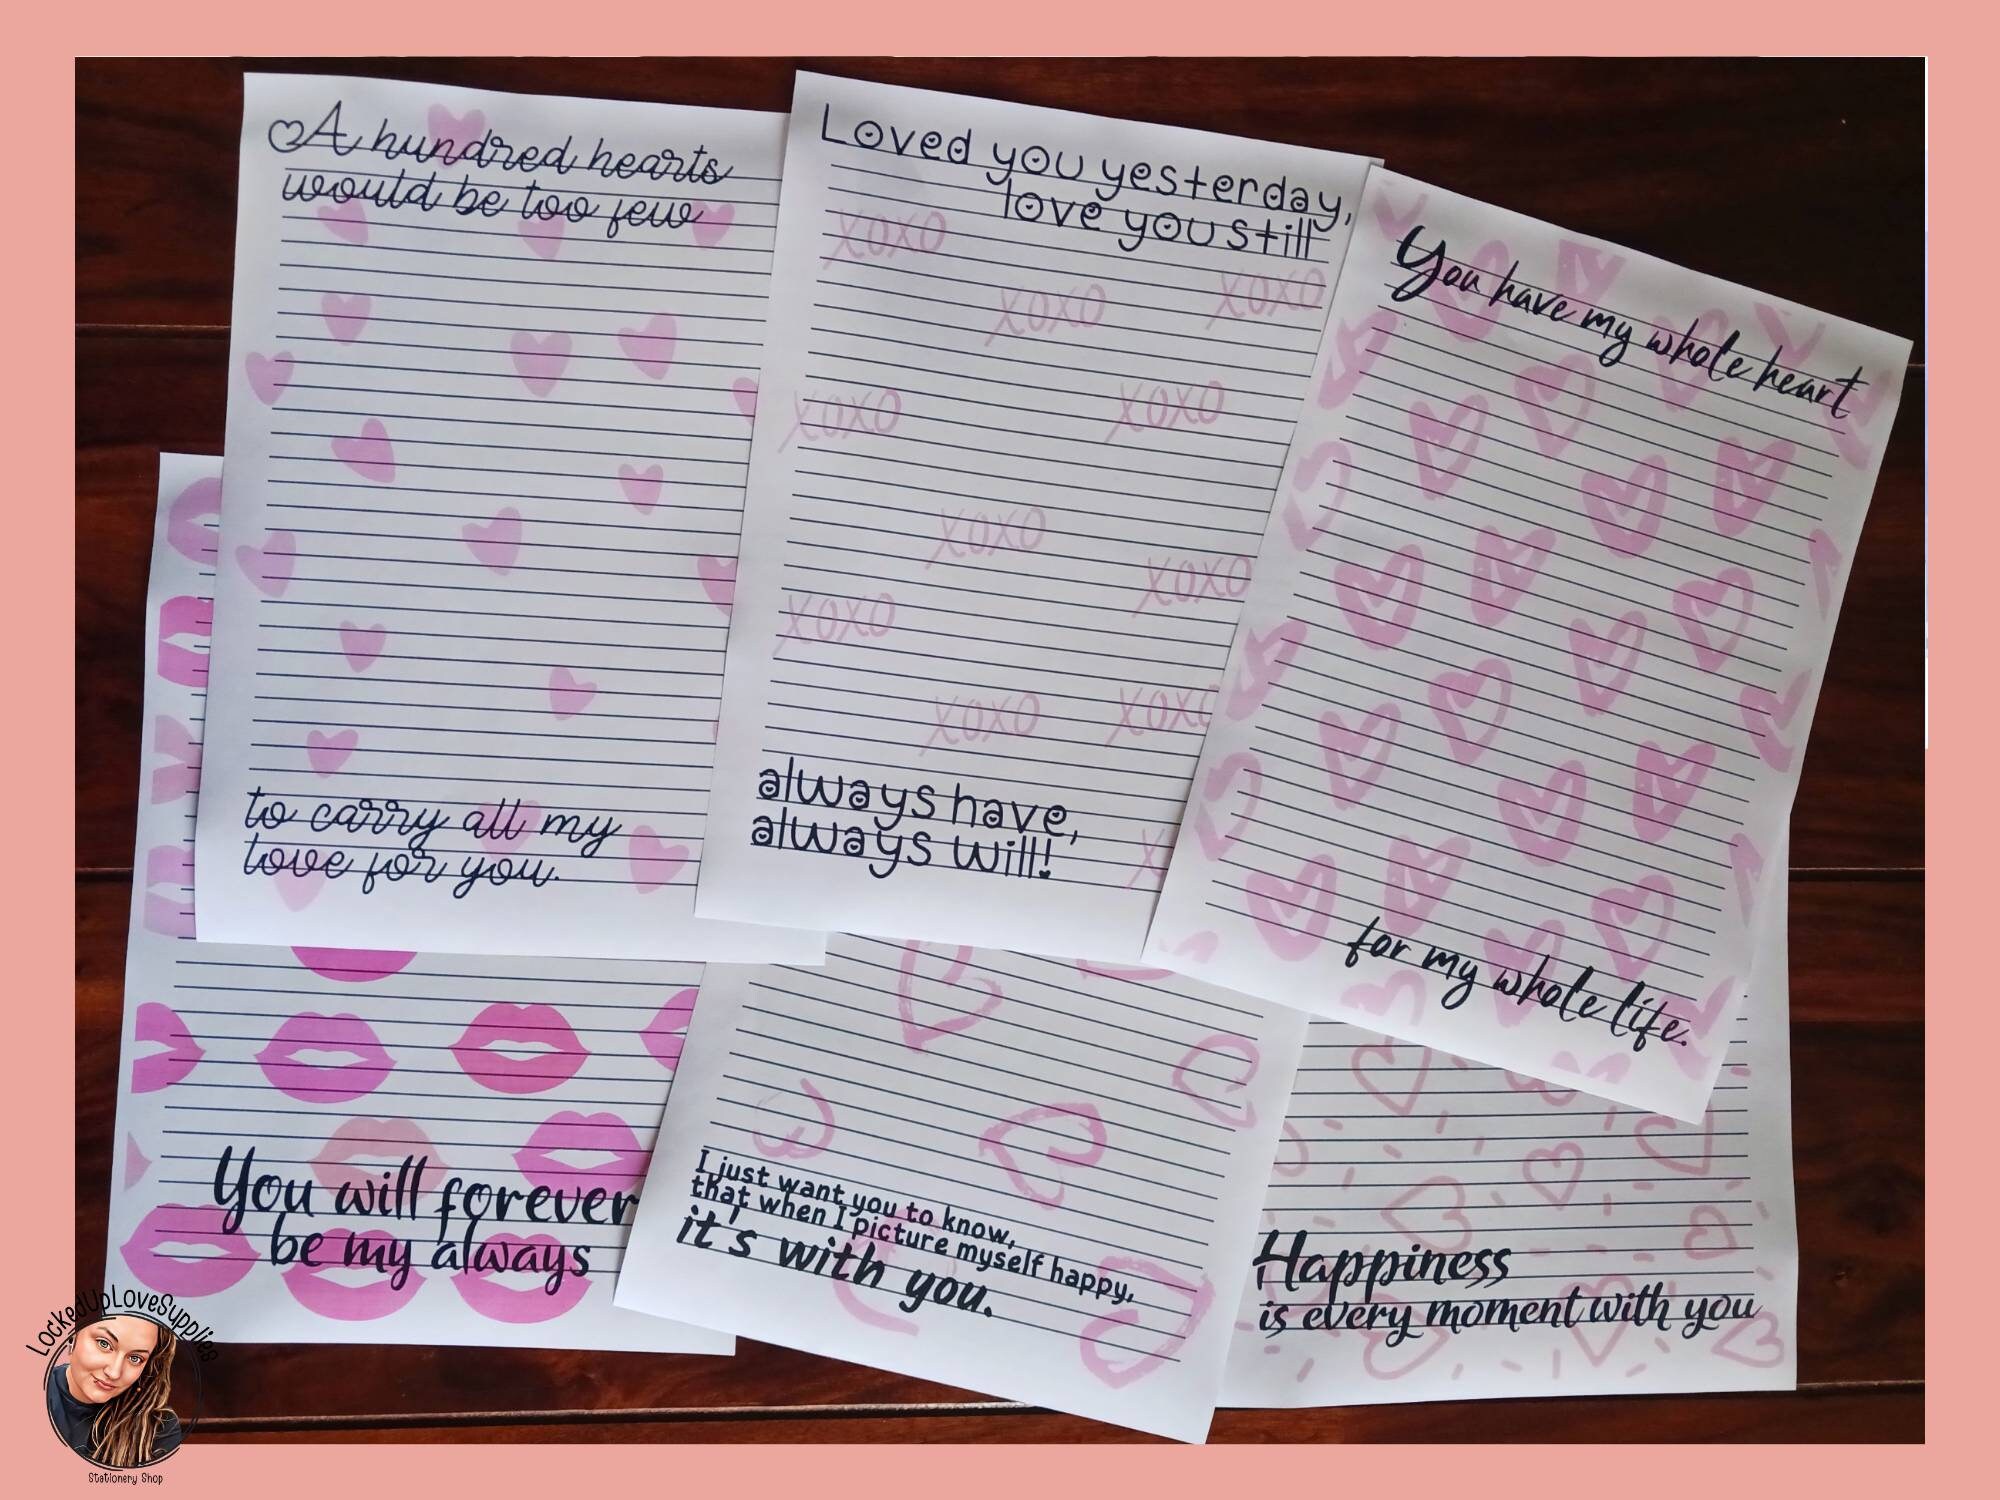 A hundred hearts
would be too few
to carry all my
love for you.
Loved you yesterday,
love you still
XOXO
XOXO
XOXO
XOXO
XOXO
XOXO
XOXO
XOXO
XOXO
XOXO
always have,
always will!
You have my whole heart
for my whole life.
You will forever
be my always
I just want you to know,
that when I picture myself happy,
it's with you.
Happiness
is every moment with you
LockedUpLoveSupplies
Stationery Shop